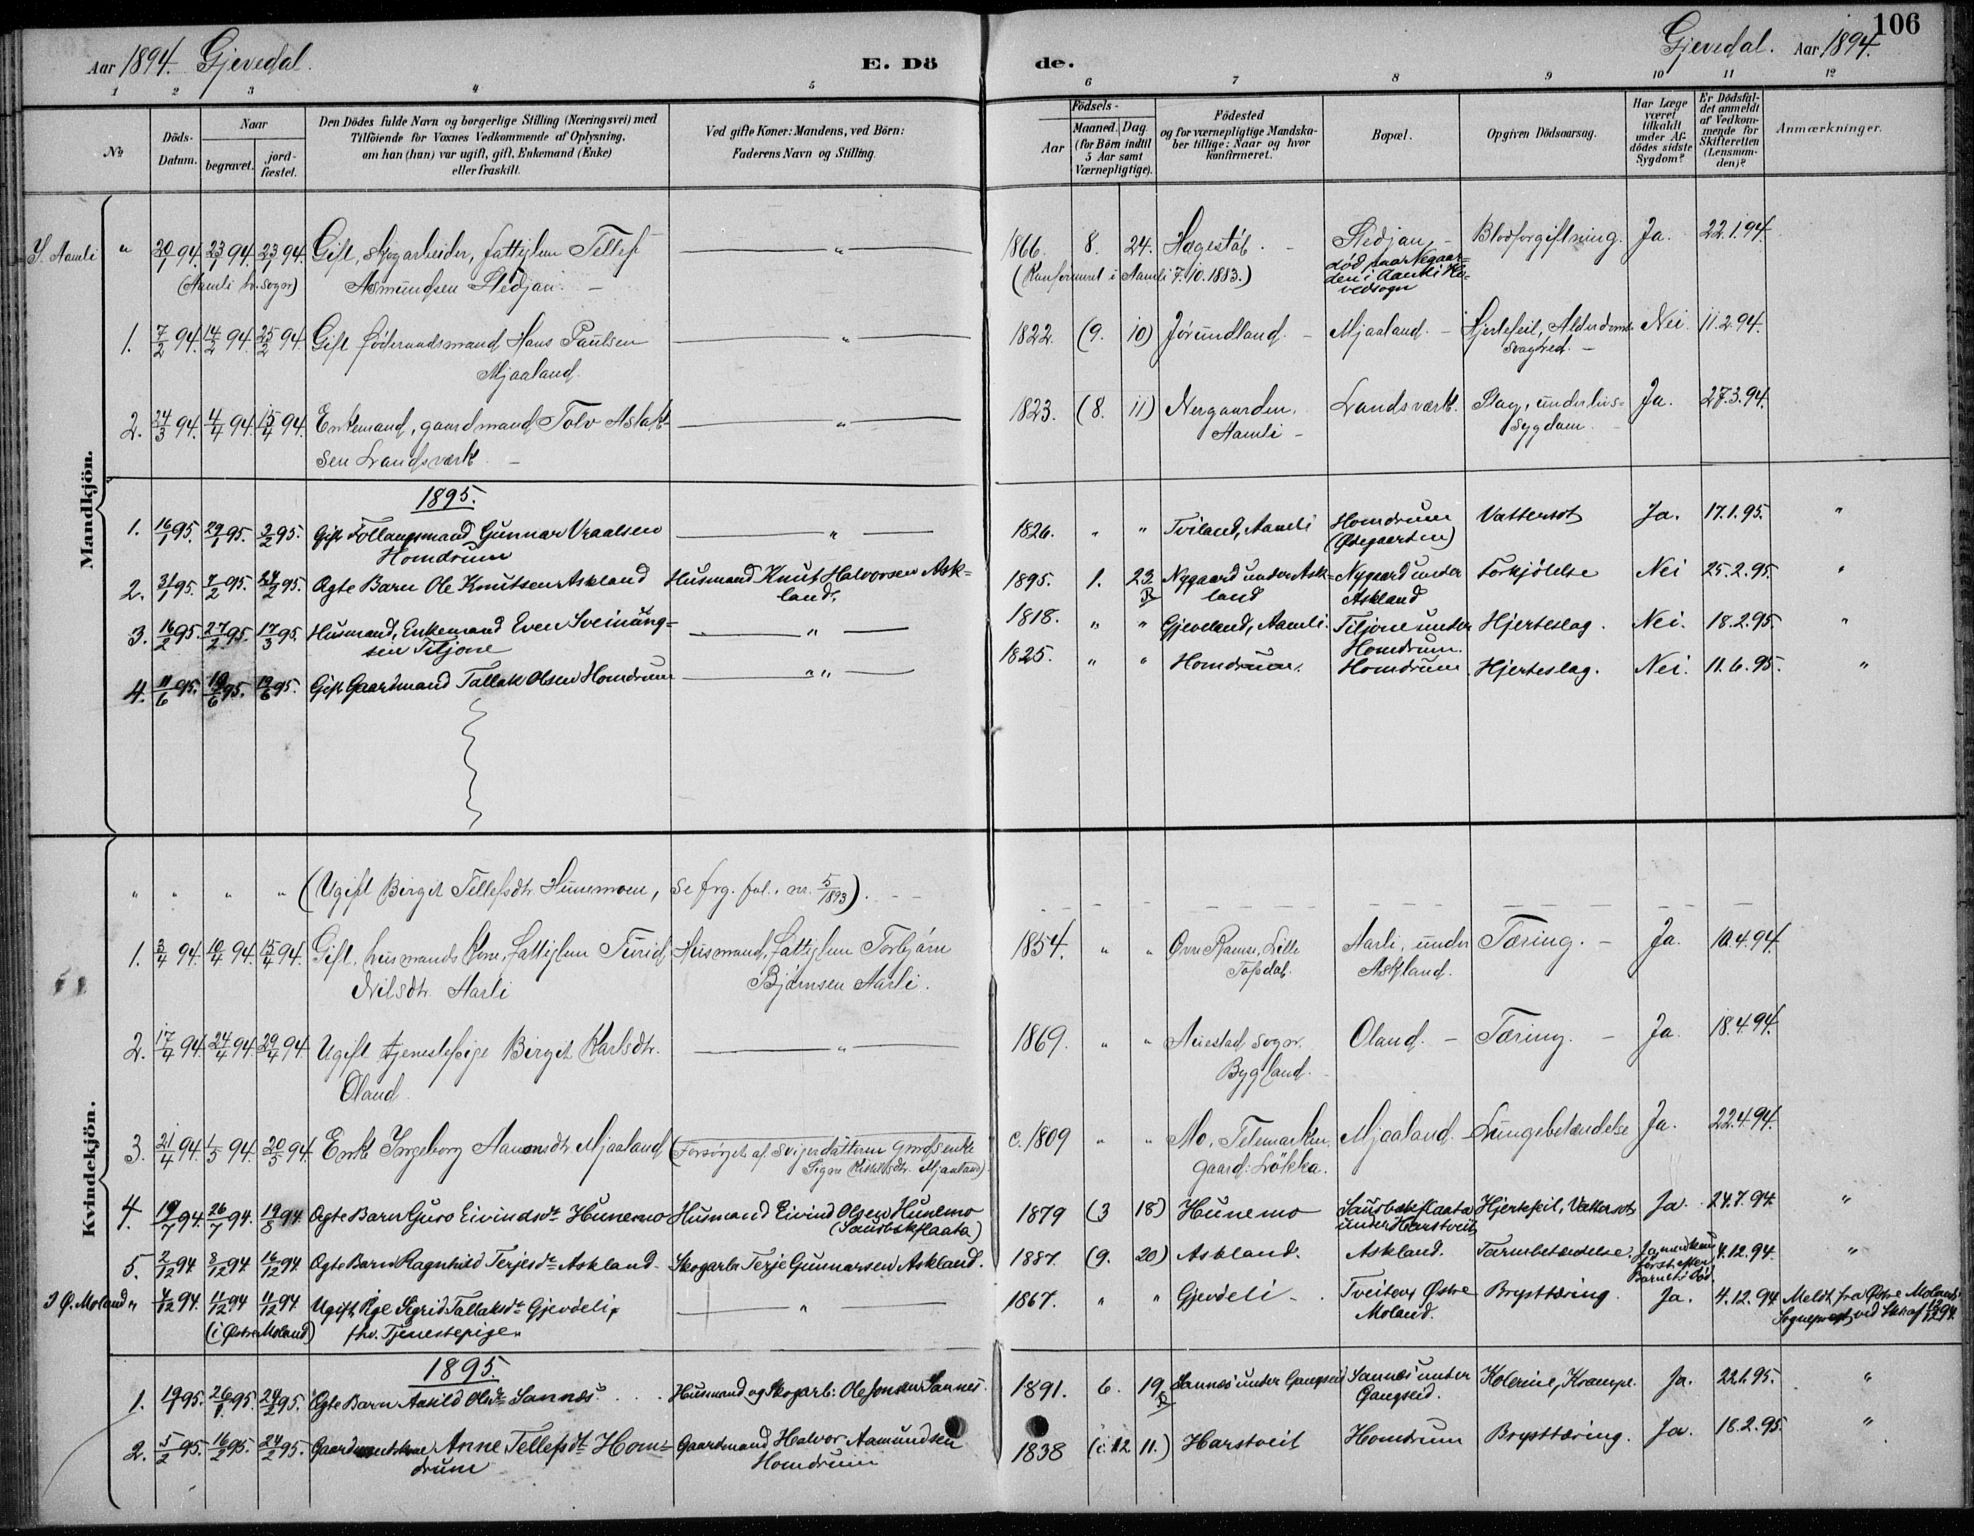 106
Aar 1894. Gjevedal. E. Dö de. Gjevedal. Aar 1894.
1 2 3 4 5 6 7 8 9 10 11 12
No. Döds-Datum. Naar begravet. jord-fæstet. Den Dödes fulde Navn og borgerlige Stilling (Næringsvei) med Tilföiende for Voxnes Vedkommende af Oplysning, om han (hun) var ugift, gift, Enkemand (Enke) eller fraskilt. Ved gifte Koner: Mandens, ved Börn: Faderens Navn og Stilling. Födsels- Aar Maaned. Dag. (for Börn indtil 5 Aar samt Værnepligtige). Födested og for værnepligtige Mandskaber tillige: Naar og hvor konfirmeret. Bopæl. Opgiven Dödsaarsag. Har Læge været tilkaldt under Afdödes sidste Sygdom? Er Dödsfaldet anmeldt af Vedkommende for Skifteretten (Lensmanden)? Anmærkninger.
Mandkjön.
Y. Aamli " 20/1 94. 23/1 94. 23/1 94. Gift, Skogarbeider, fattiglem Tellef " 1866. 8. 24. Hægestøl. Stedjan, Blodforgiftning. Ja. 22.1.94.
(Aamli hr. sogn) Asmundsen Stedjan. (Konfirmeret i Aamli 7.10.1883.) død paa Negaarden i Aamli Hovedsogn
1. 7/2 94. 14/2 94. 25/2 94. Gift føderaadsmand Hans Paulsen " 1822. (9. 10) Jørundland. Mjaaland. Hjertefeil, Alderdoms- Nei. 11.2.94.
Mjaaland. svaghed.
2. 24/3 94. 4/4 94. 15/4 94. Enkemand, gaardmand Tolv Aslak- " 1823. (8. 11) Nergaarden, Landsværk. Slag, underlivs- Ja. 27.3.94.
sen Landsværk. Aamli sygdom.
1895.
1. 16/1 95. 29/1 95. 3/2 95. Gift Follaugsmand Gunnar Vraalsen " 1826. " " Tviland, Aamli Homdrum Vattersot Ja. 17.1.95. "
Homdrum (Østegaarden)
2. 31/1 95. 7/2 95. 24/2 95. Ægte Barn Ole Knutsen Askland Husmand Knut Halvorsen Ask- 1895. 1. 23 Nygaard under Ask- Nygaard under Forkjølelse Nei 25.2.95. "
land. land Askland
3. 16/2 95. 27/2 95. 17/3 95. Husmand, Enkemand Even Sveinung- " 1818. " " Gjeveland, Aamli. Tiljone under Hjerteslag. Nei. 18.2.95. "
sen Tiljone Homdrum.
4. 11/6 95. 19/6 95. 19/6 95. Gift Gaardmand Tallak Olsen Homdrum " 1825. " " Homdrum. Homdrum Hjerteslag. Nei. 11.6.95. "
Kvindekjön.
" " " " (Ugift Birgit Tellefsdtr. Hunemoen, se frg. fol. nr. 5/1893).
1. 3/4 94. 10/4 94. 15/4 94. Gift, husmands Kone, Fattiglem Turid Husmand, Fattiglem Torbjørn 1854. " " Øvre Ramse, Lille Aarli, under Tæring. Ja. 10.4.94.
Nilsdtr. Aarli Bjørnsen Aarli. Topdal. Askland.
2. 17/4 94. 24/4 94. 29/4 94. Ugift tjenestepige Birgit Karlsdtr. " 1869. " " Aurestad sogn. Oland. Tæring. Ja. 18.4.94.
Oland. Bygland.
3. 21/4 94. 1/5 94. 20/5 94. Enke Ingeborg Aanonsdtr. Mjaaland (Forsørget af Svigerdatteren Grafsenke c. 1809 " " Mo, Telemarken, Mjaaland. Lungebetændelse Ja. 22.4.94.
Signe Mjaaland) gaard: Løkka.
4. 19/7 94. 26/7 94. 19/8 94. Ægte Barn Guro Eivindsdtr Hunemo Husmand Eivind Olsen Hunemo 1879 (3 18) Hunemo Sausbakflaata Hjertefeil, Vattersot Ja. 24.7.94. "
(Sausbakflaata) under Harstveit
5. 2/12 94. 8/12 94. 16/12 94. Ægte Barn Ragnhild Terjesdtr Askland Skogarb. Terje Gunnarsen Askland. 1887. (9. 20) Askland. Askland. Tarmbetændelse. Ja, men kom først efter Barnets Død. 4.12.94. "
I Ø. Moland " 4/12 94. 11/12 94 11/12 94. Ugift Pige Sigrid Tallaksdtr Gjevdeli, " 1867. " " Gjevdeli Tveiten, Østre Brysttæring. Ja. 4.12.94 Meldt fra Østre Molands
(i Østre Moland) fhv. Tjenestepige. Moland. Sogneprest ved Skr. af 12/12 94.
1895.
1. 19/1 95. 26/1 95. 24/2 95. Ægte Barn Aasild Olsdtr Sannes. Husmand og Skogarb: Ole Jonsen Sannes. 1891. 6. 19 Sannes under Gangseid Sannes under Kolerine, Krampe. Ja. 22.1.95. "
Gangseid.
2. 5/2 95. 16/2 95. 24/2 95. Gaardmandskone Anne Tellefsdtr Hom- Gaardmand Halvor Aamundsen 1838 (c. 12 11.) Harstveit Homdrum Brysttæring. Ja. 18.2.95. "
drum Homdrum